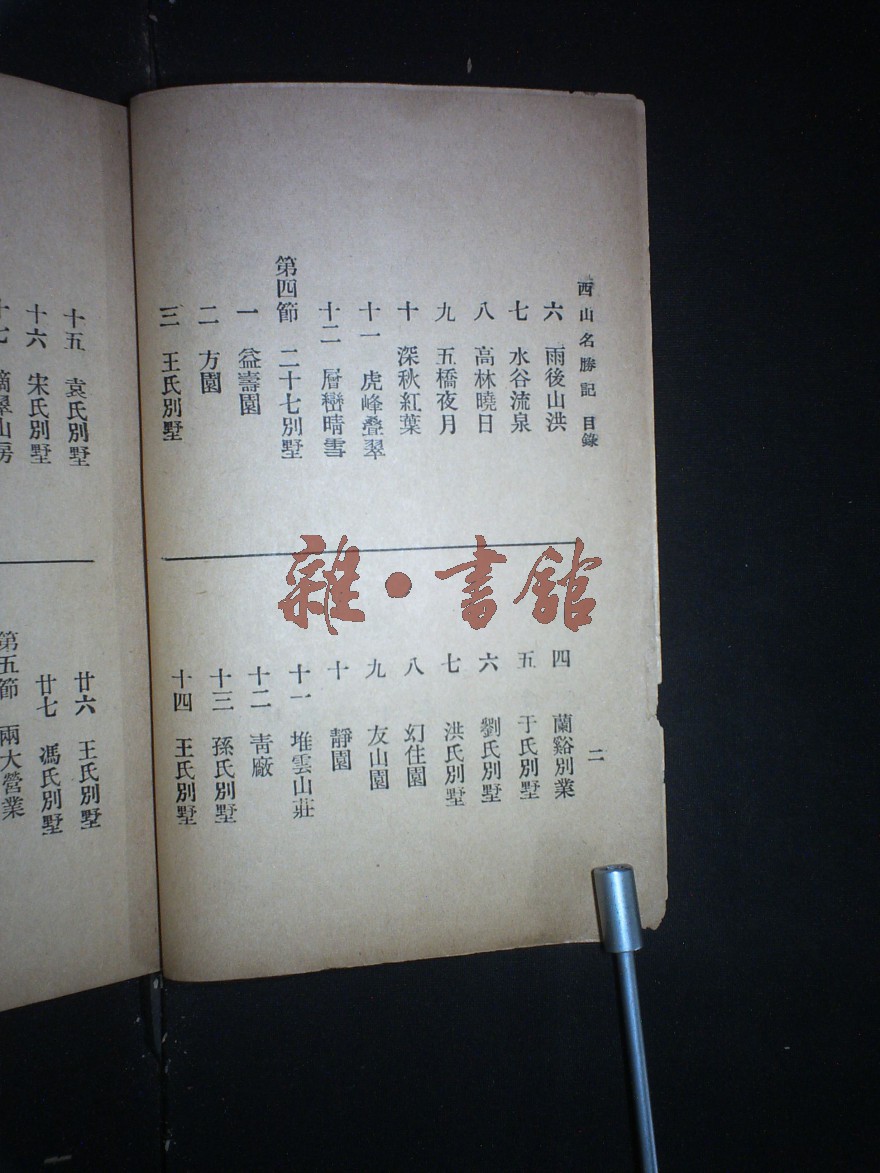 西山名勝記 目錄
六 雨後山洪
七 水谷流泉
八 高林曉日
九 五橋夜月
十 深秋紅葉
十一 虎峰疊翠
十二 層巒晴雪
第四節 二十七別墅
一 益壽園
二 方園
三 王氏別墅
二
四 蘭谿別業
五 于氏別墅
六 劉氏別墅
七 洪氏別墅
八 幻住園
九 友山園
十 靜園
十一 堆雲山莊
十二 靑廠
十三 孫氏別墅
十四 王氏別墅
十五 袁氏別墅
十六 宋氏別墅
十七 翠山房
廿六 王氏別墅
廿七 馮氏別墅
第五節 兩大營業
雜·書館